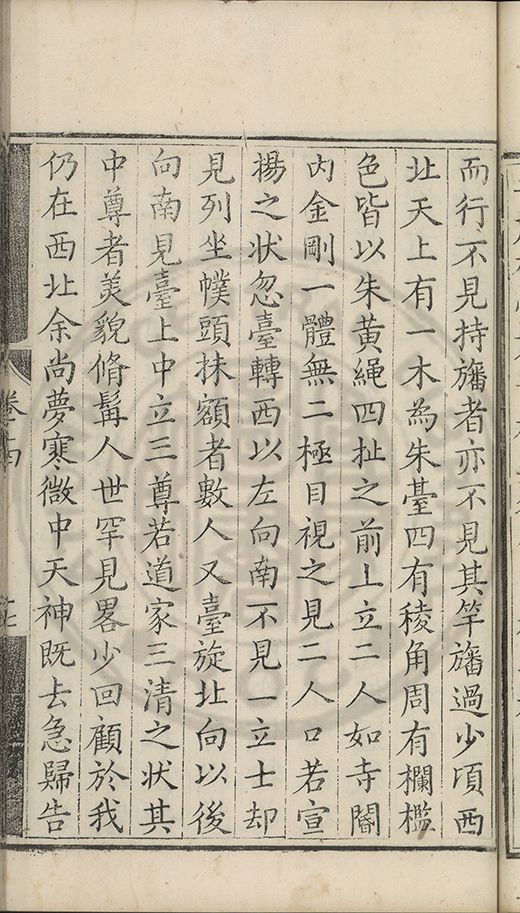 而行不見持旛者亦不見其竿旛過少頃西
北天上有一木為朱臺四有稜角周有欄檻
色皆以朱黃繩四扯之前上立二人如寺閽
內金剛一體無二極目視之見二人口若宣
揚之狀忽臺轉西以左向南不見一立士却
見列坐幞頭抹額者數人又臺旋北向以後
向南見臺上中立三尊若道家三清之狀其
中尊者美貌脩髯人世罕見畧少回顧於我
仍在西北余尚夢寒微中天神既去急歸告
卷十四